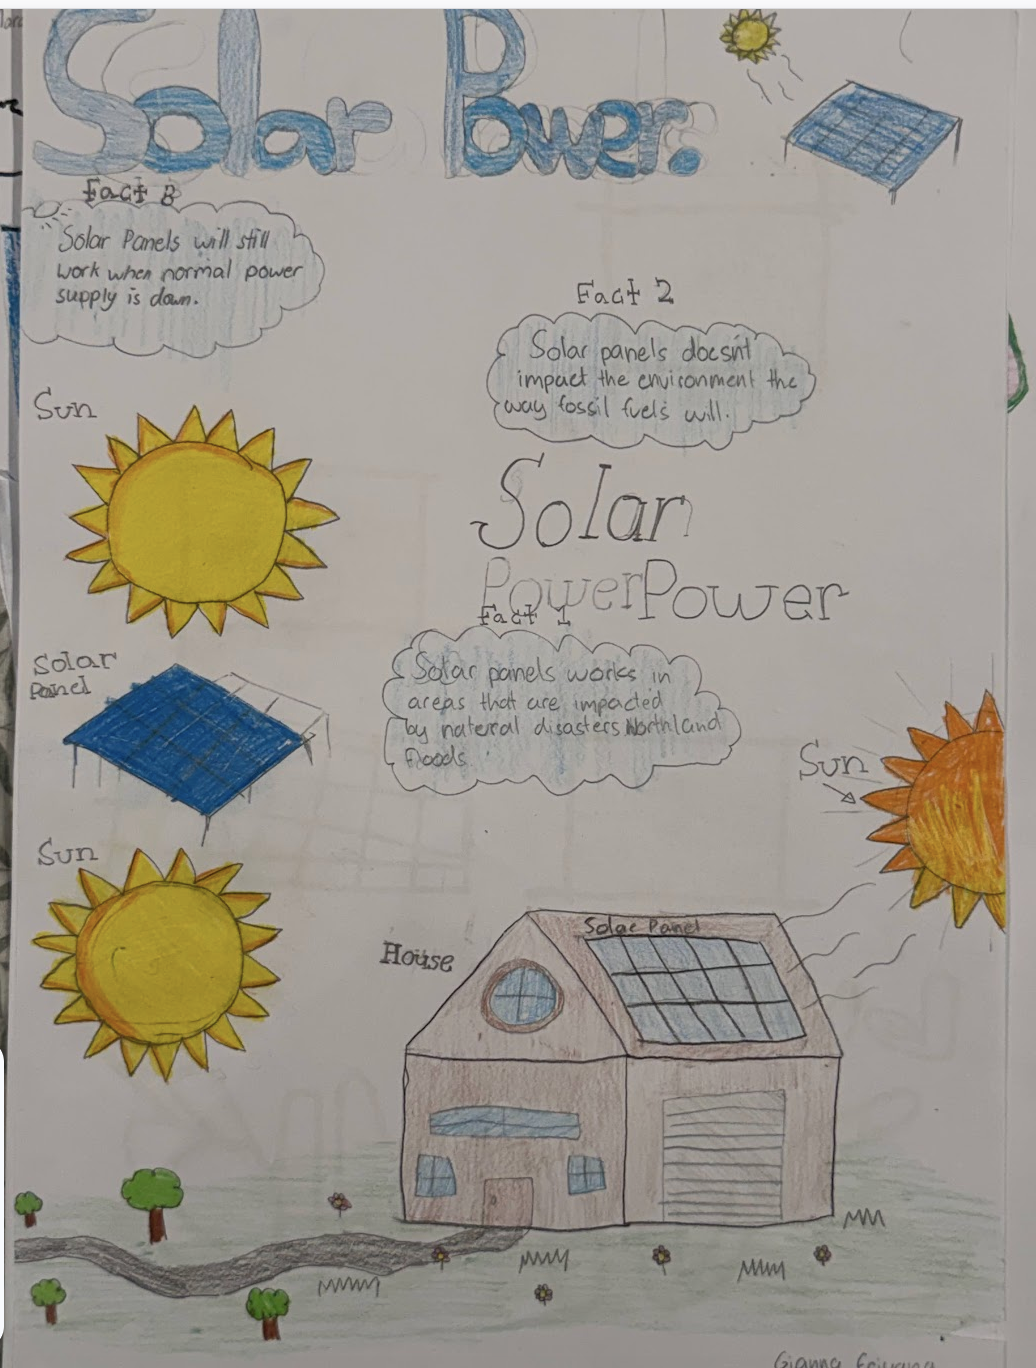 Solar Power.
Fact 3
Solar Panels will still
work when normal power
supply is down.
Fact 2
Solar panels doesn't
impact the environment the
way fossil fuels will.
Sun
Solar
Power Power
Fact 1
Solar panels works in
areas that are impacted
by nateral disasters Northland
floods.
Solar
Panel
Sun
Sun
House
Solar Panel
Gianna